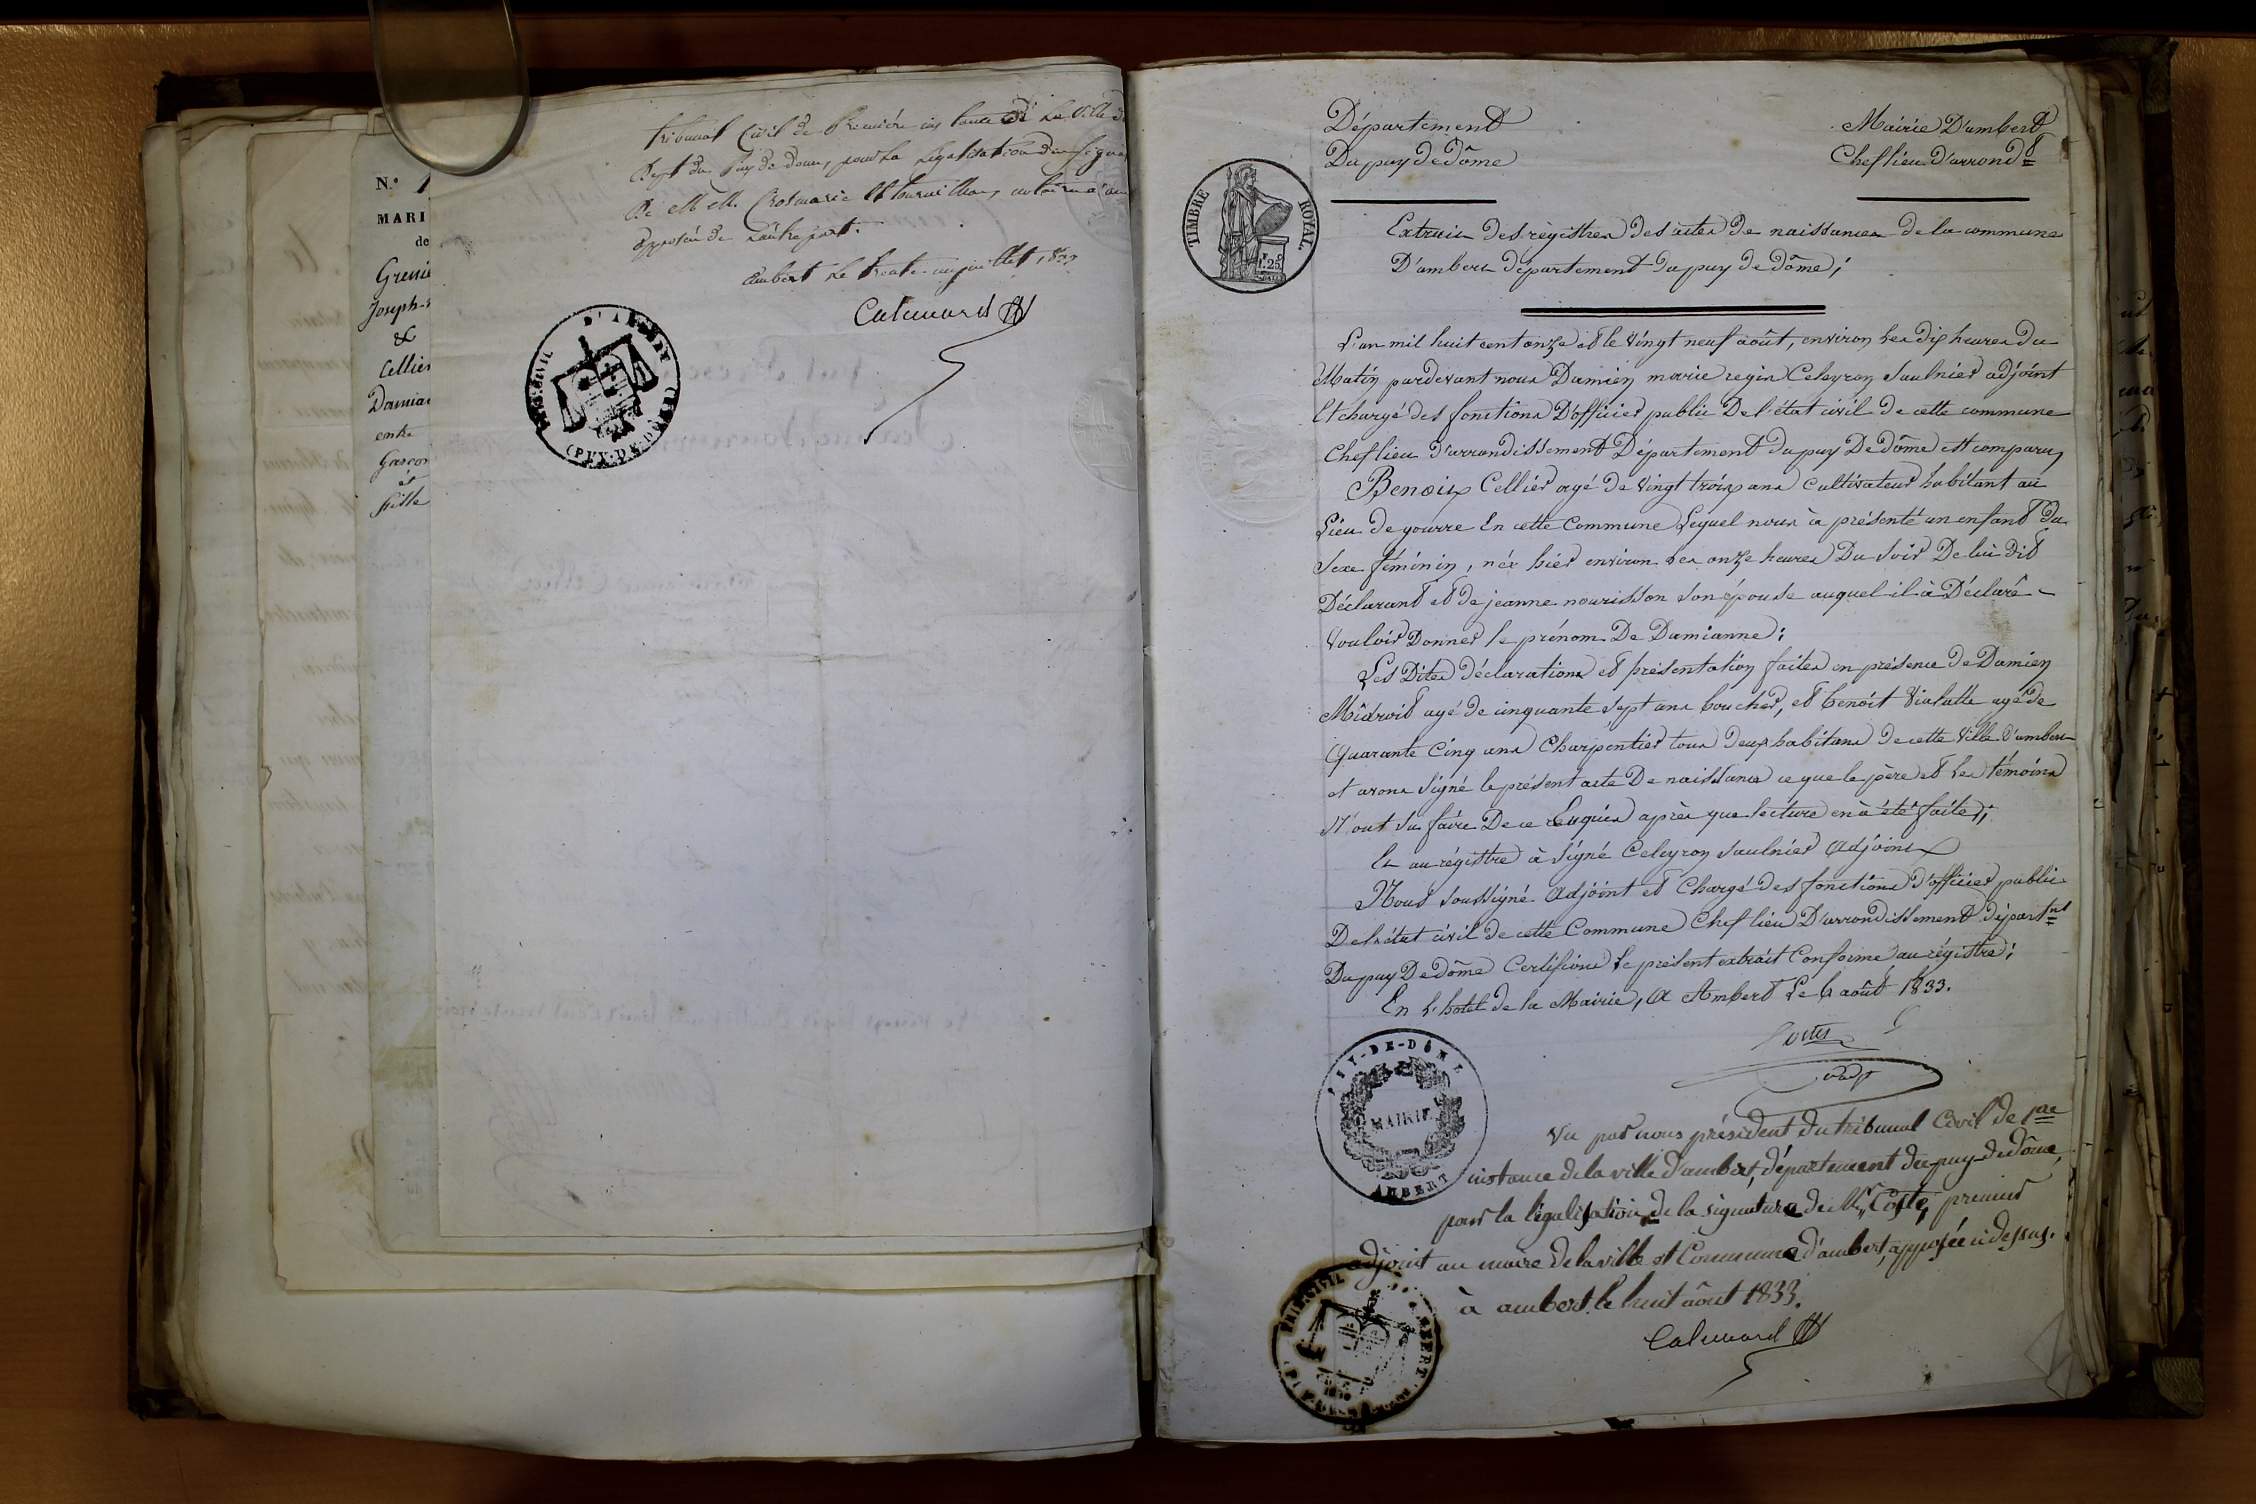 Tribunal Civil de Première instance de la Ville d
Dept du Puy de dome, pour la légalisation des signa
De MM. Crosmarie et tournilhac, notaires a am
apposées de l'autre part.
Ambert le trente un juillet 1833
Calemard
TRIB. CIVIL D'AMBERT
(PUY-DE-DOME)
N.° 1
MARI
de
Joseph-
&
Cellier
Damia
entre
Gascon
et
fille
Département
Du puy De Dôme
Mairie D'ambert
Chef lieu d'arrondt
TIMBRE ROYAL.
1.25
Extrait des règistres des actes de naissances de la commune
D'ambert département du puy de dôme;
L'an mil huit cent onze et le vingt neuf août, environ les dix heures du
Matin pardevant nous Damien marie regis Celeyron Saulnier adjoint
Et chargé des fonctions D'officier public De l'état civil de cette commune
Chef lieu d'arrondissement Département du puy De Dôme est comparu
Benoix Cellier agé de vingt trois ans Cultivateur habitant au
Lieu de gourre En cette Commune Lequel nous à présenté un enfant du
Sexe féminin, néx hier environ les onze heures Du Soir De lui dit
Déclarant et de jeanne nourisson son épouse auquel il à Déclaré
vouloir Donner le prénom De Damianne;
Les Dites déclarations et présentation faites en présence de Damien
agé de cinquante sept ans boucher, et benoit Vialatte agé de
Quarante Cinq ans Charpentier tous deux habitans de cette Ville d'ambert
et avons Signé le présent acte De naissance ce que le père et les témoins
N'ont su faire De ce Enquis après que lecture en à été faite;
Et au régistre à Signé Celeyron Saulnier adjoint
Nous Soussigné adjoint et Chargé des fonctions d'officier public
De l'état civil de cette Commune Chef lieu D'arrondissement départnt
Du puy De Dôme Certifions le présent extrait Conforme au régistre;
En L'hotel de la Mairie, A Ambert Le 6 août 1833.
Coste
adjt
PUY-DE-DÔME
MAIRIE
AMBERT
Vu par nous président du tribunal Civil de 1re
instance de la ville d'ambert, département du puy de dôme,
pour la légalisation de la signature de Mr Coste, premier
adjoint au maire de la ville et Commune d'ambert, apposée ci dessus.
à ambert le huit août 1833.
Calemard
TRIB. CIVIL D'AMBERT